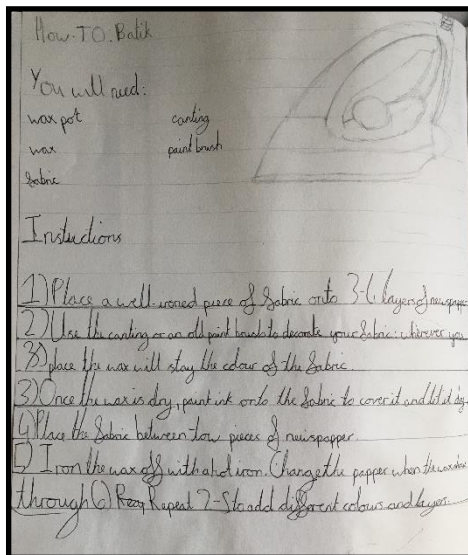 How-TO-Batik
You will need:
wax pot canting
wax paint brush
fabric
Instructions
1) Place a well-ironed piece of fabric onto 3-6 layers of newspaper
2) Use the canting or an old paint brush to decorate your fabric: wherever you
3) place the wax will stay the colour of the fabric.
3) Once the wax is dry, paint ink onto the fabric to cover it and let it dry.
4) Place the fabric between tow pieces of newspapper.
5) Iron the wax off with a hot iron. Change the papper when the wax
through 6) Repeat 2-5 to add different colours and layers.